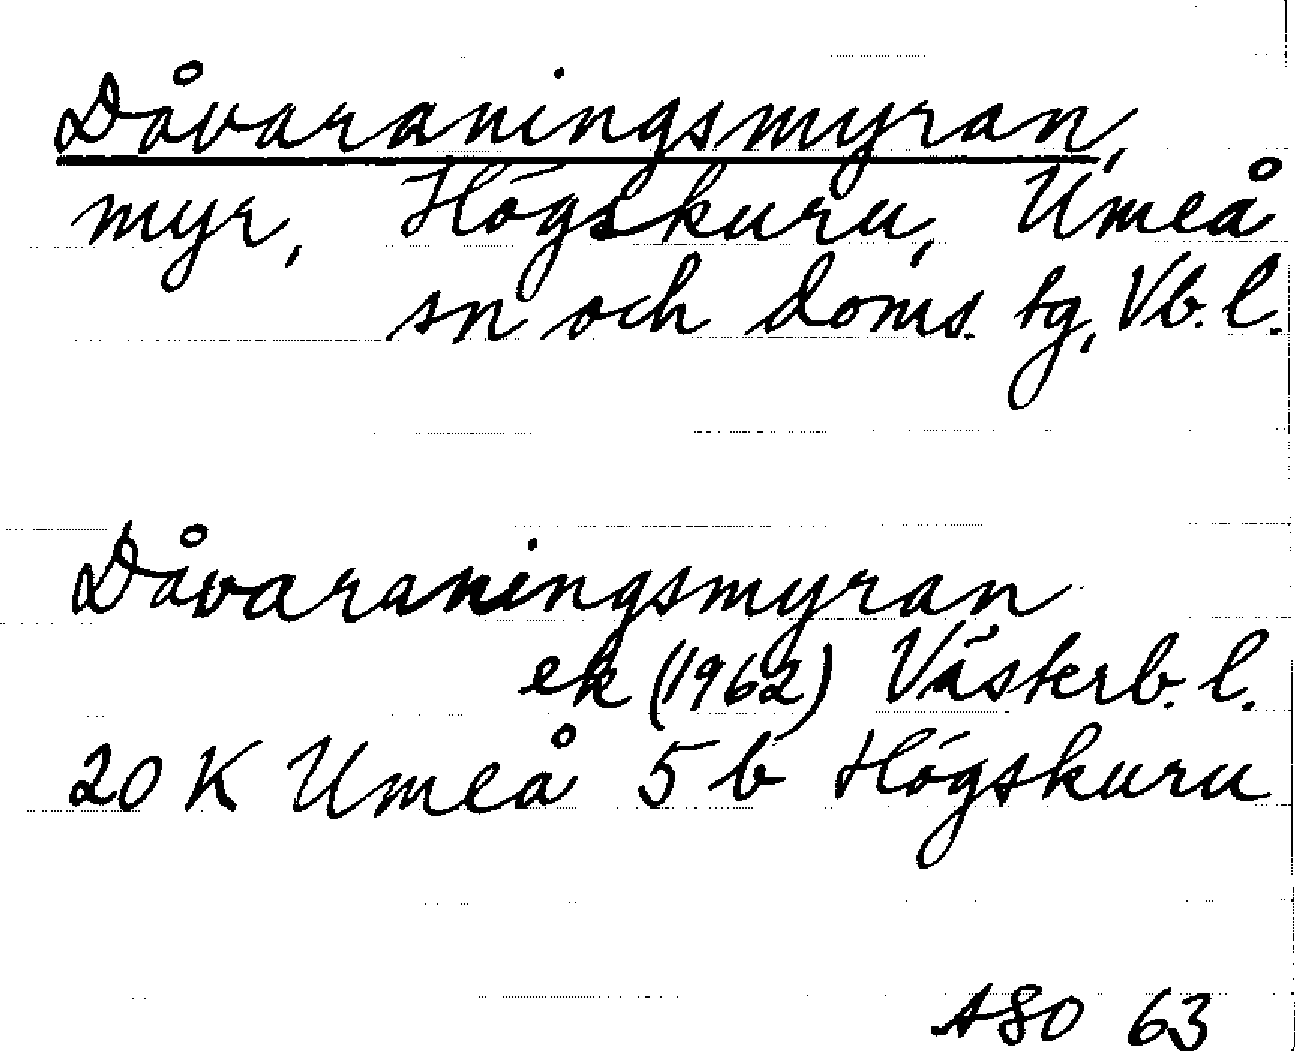 Dåvaraningsmyran,
myr, Högskuru, Umeå
sn och doms. tg, Vb. l.
Dåvaraningsmyran
ek (1962) Västerb. l.
20 K Umeå 5 b Högskuru
ASO 63